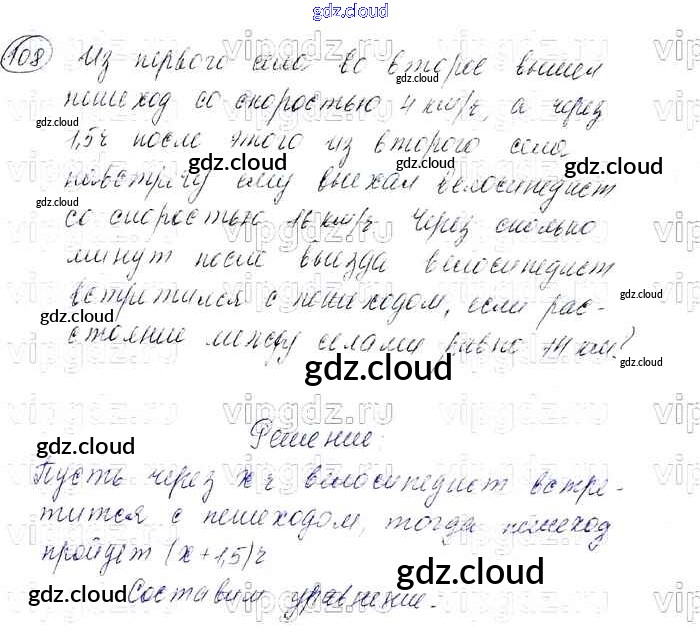 gdz.cloud
108 Из первого села во второе вышел
пешеход со скоростью 4 км/ч, а через
1,5 ч после этого из второго села
навстречу ему выехал велосипедист
со скоростью 16 км/ч Через сколько
минут после выезда велосипедист
встретился с пешеходом, если рас-
стояние между селами равно 14 км?
Решение:
Пусть через x ч велосипедист встре-
тится с пешеходом, тогда пешеход
пройдёт (x+1,5) ч
Составим уравнение: